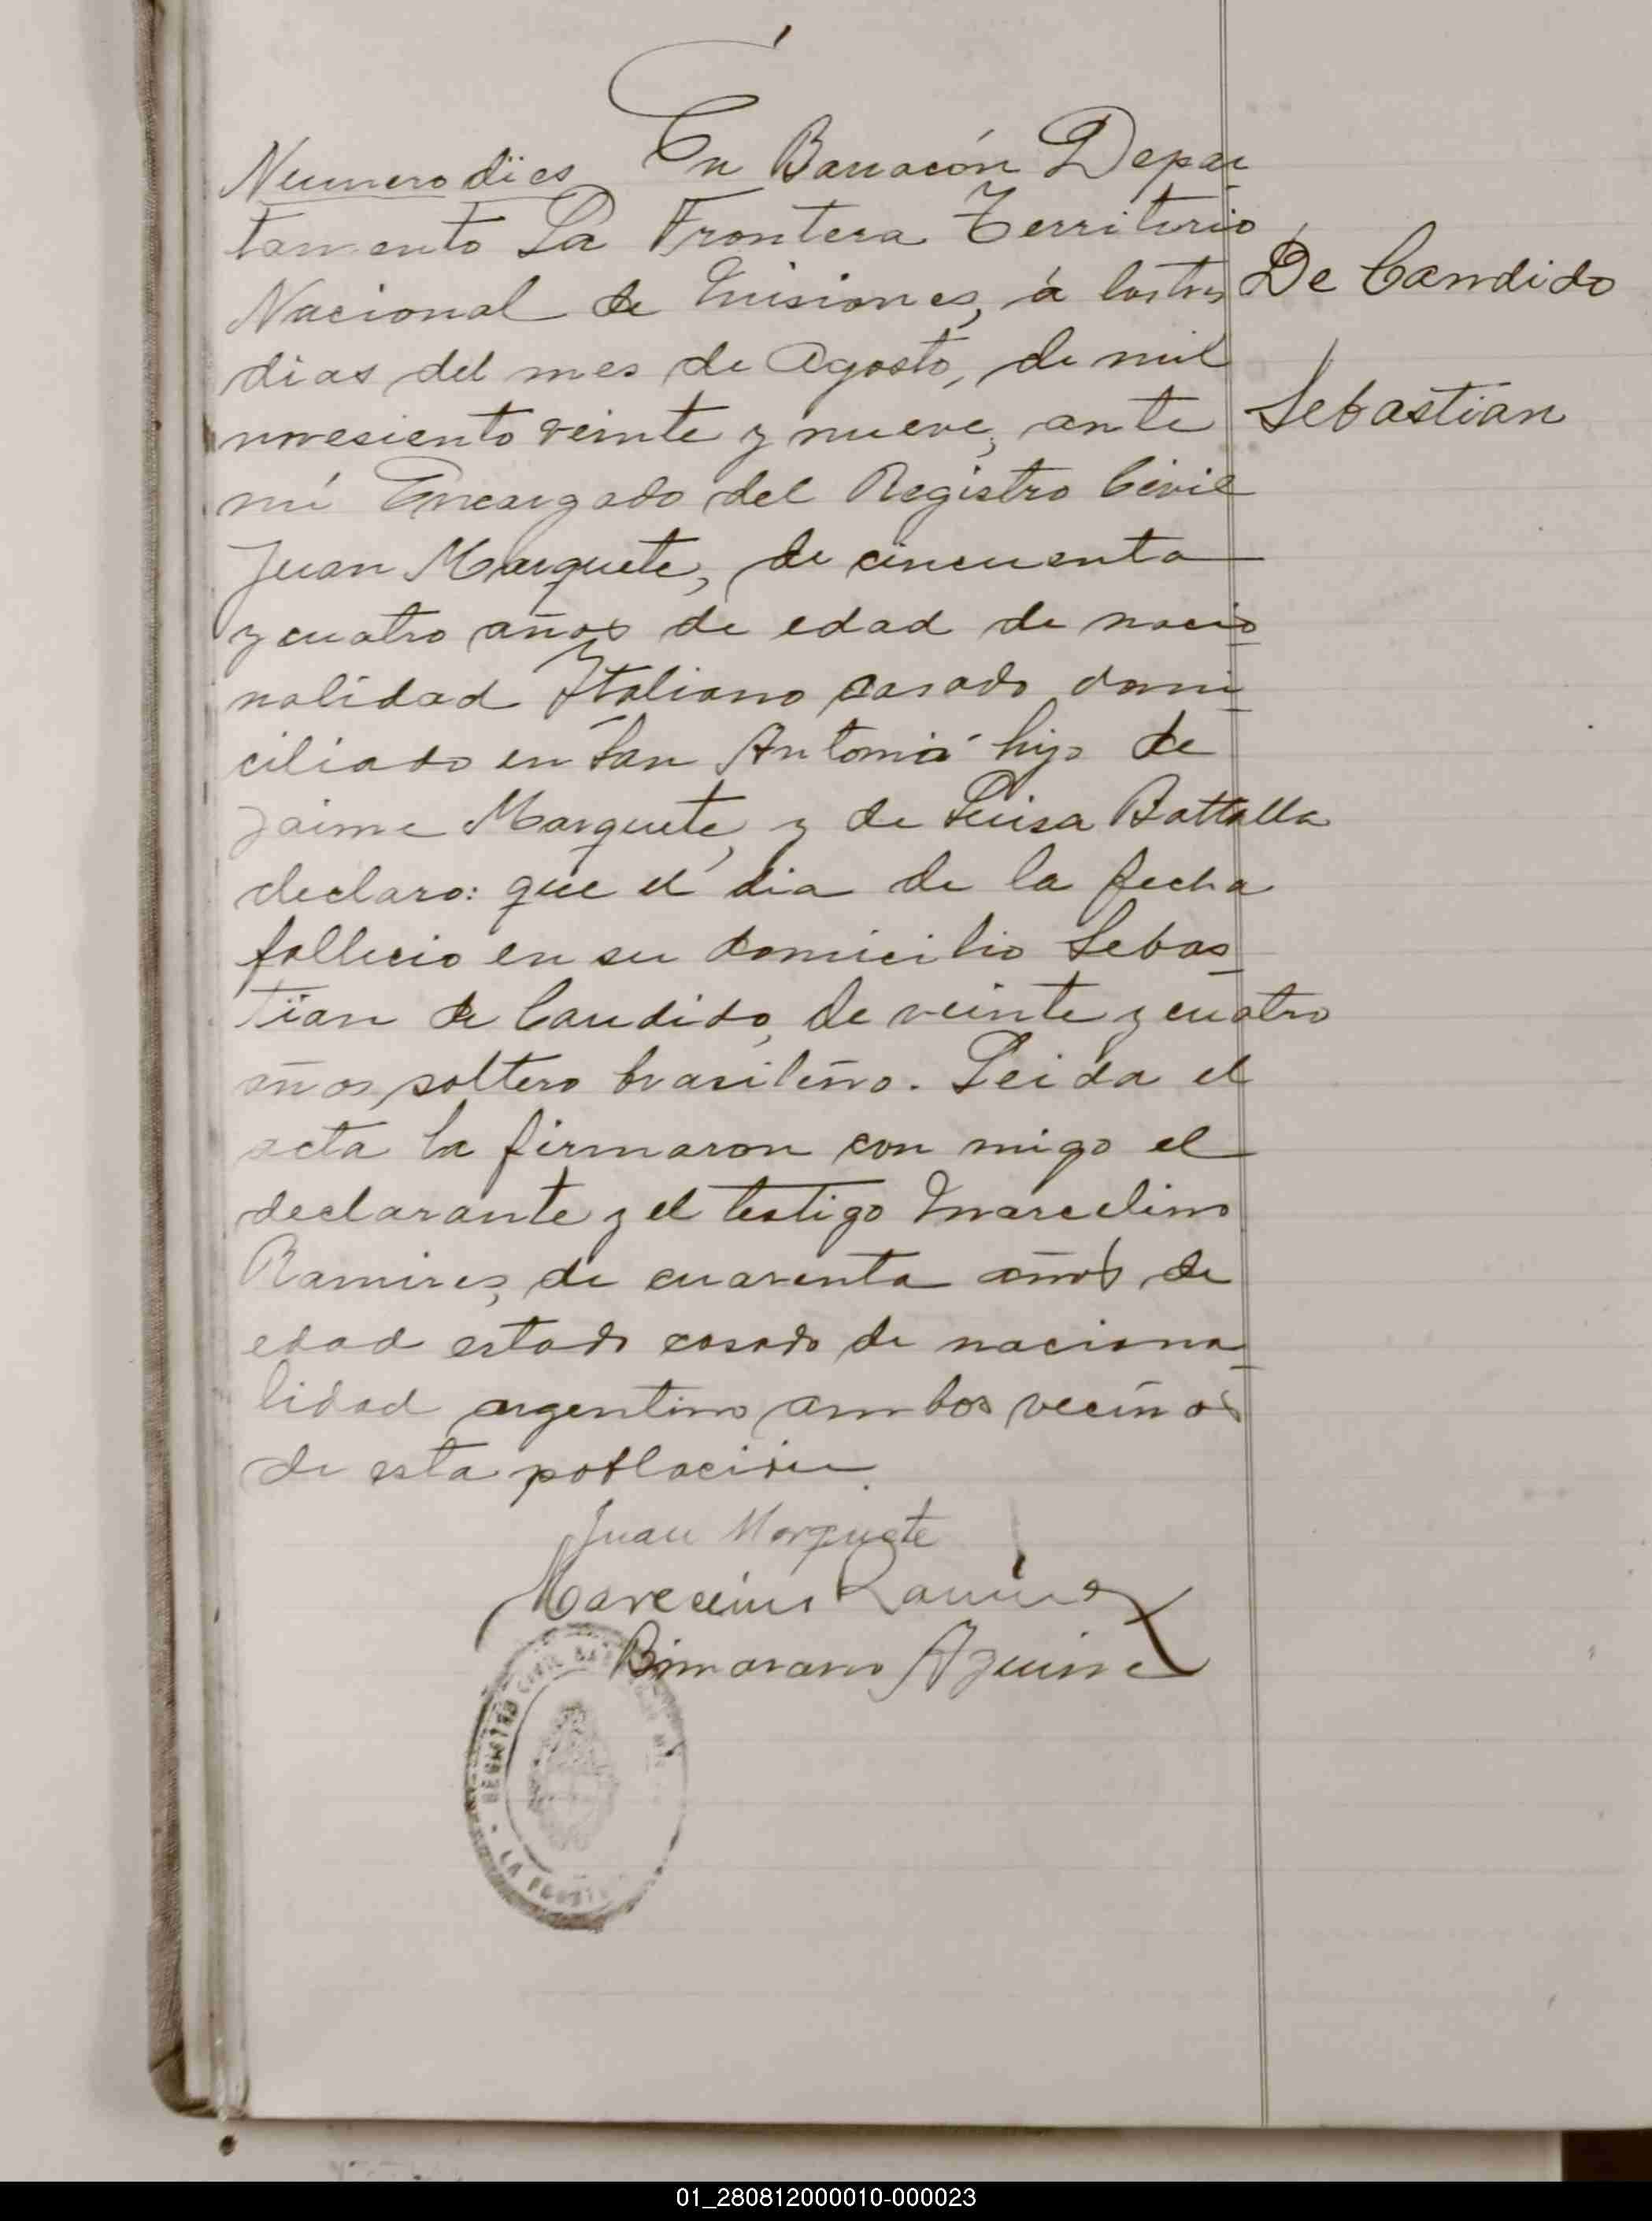 Numero dies En Barracón Depar
tamento La Frontera Territorio
Nacional de Misiones, á los tres
dias del mes de Agosto, de mil
novesiento veinte y nueve, ante
mi Encargado del Registro Civil
Juan Marquete, de cincuenta
y cuatro años de edad de nacio
nalidad Italiano casado domi
ciliado en San Antonio hijo de
Jaime Marquete, y de Luisa Battalla
declaro: que el dia de la fecha
fallecio en su domicilio Sebas
tian de Candido, de veinte y cuatro
años soltero brasileño. Leida el
acta la firmaron con migo el
declarante y el testigo Marcelino
Ramires, de cuarenta años de
edad estado casado de naciona
lidad argentino ambos vecinos
de esta poblacion
De Candido
Sebastian
Juan Marquete
Marcelino Ramirez
Aguirre
REGISTRO CIVIL
LA
01_280812000010-000023